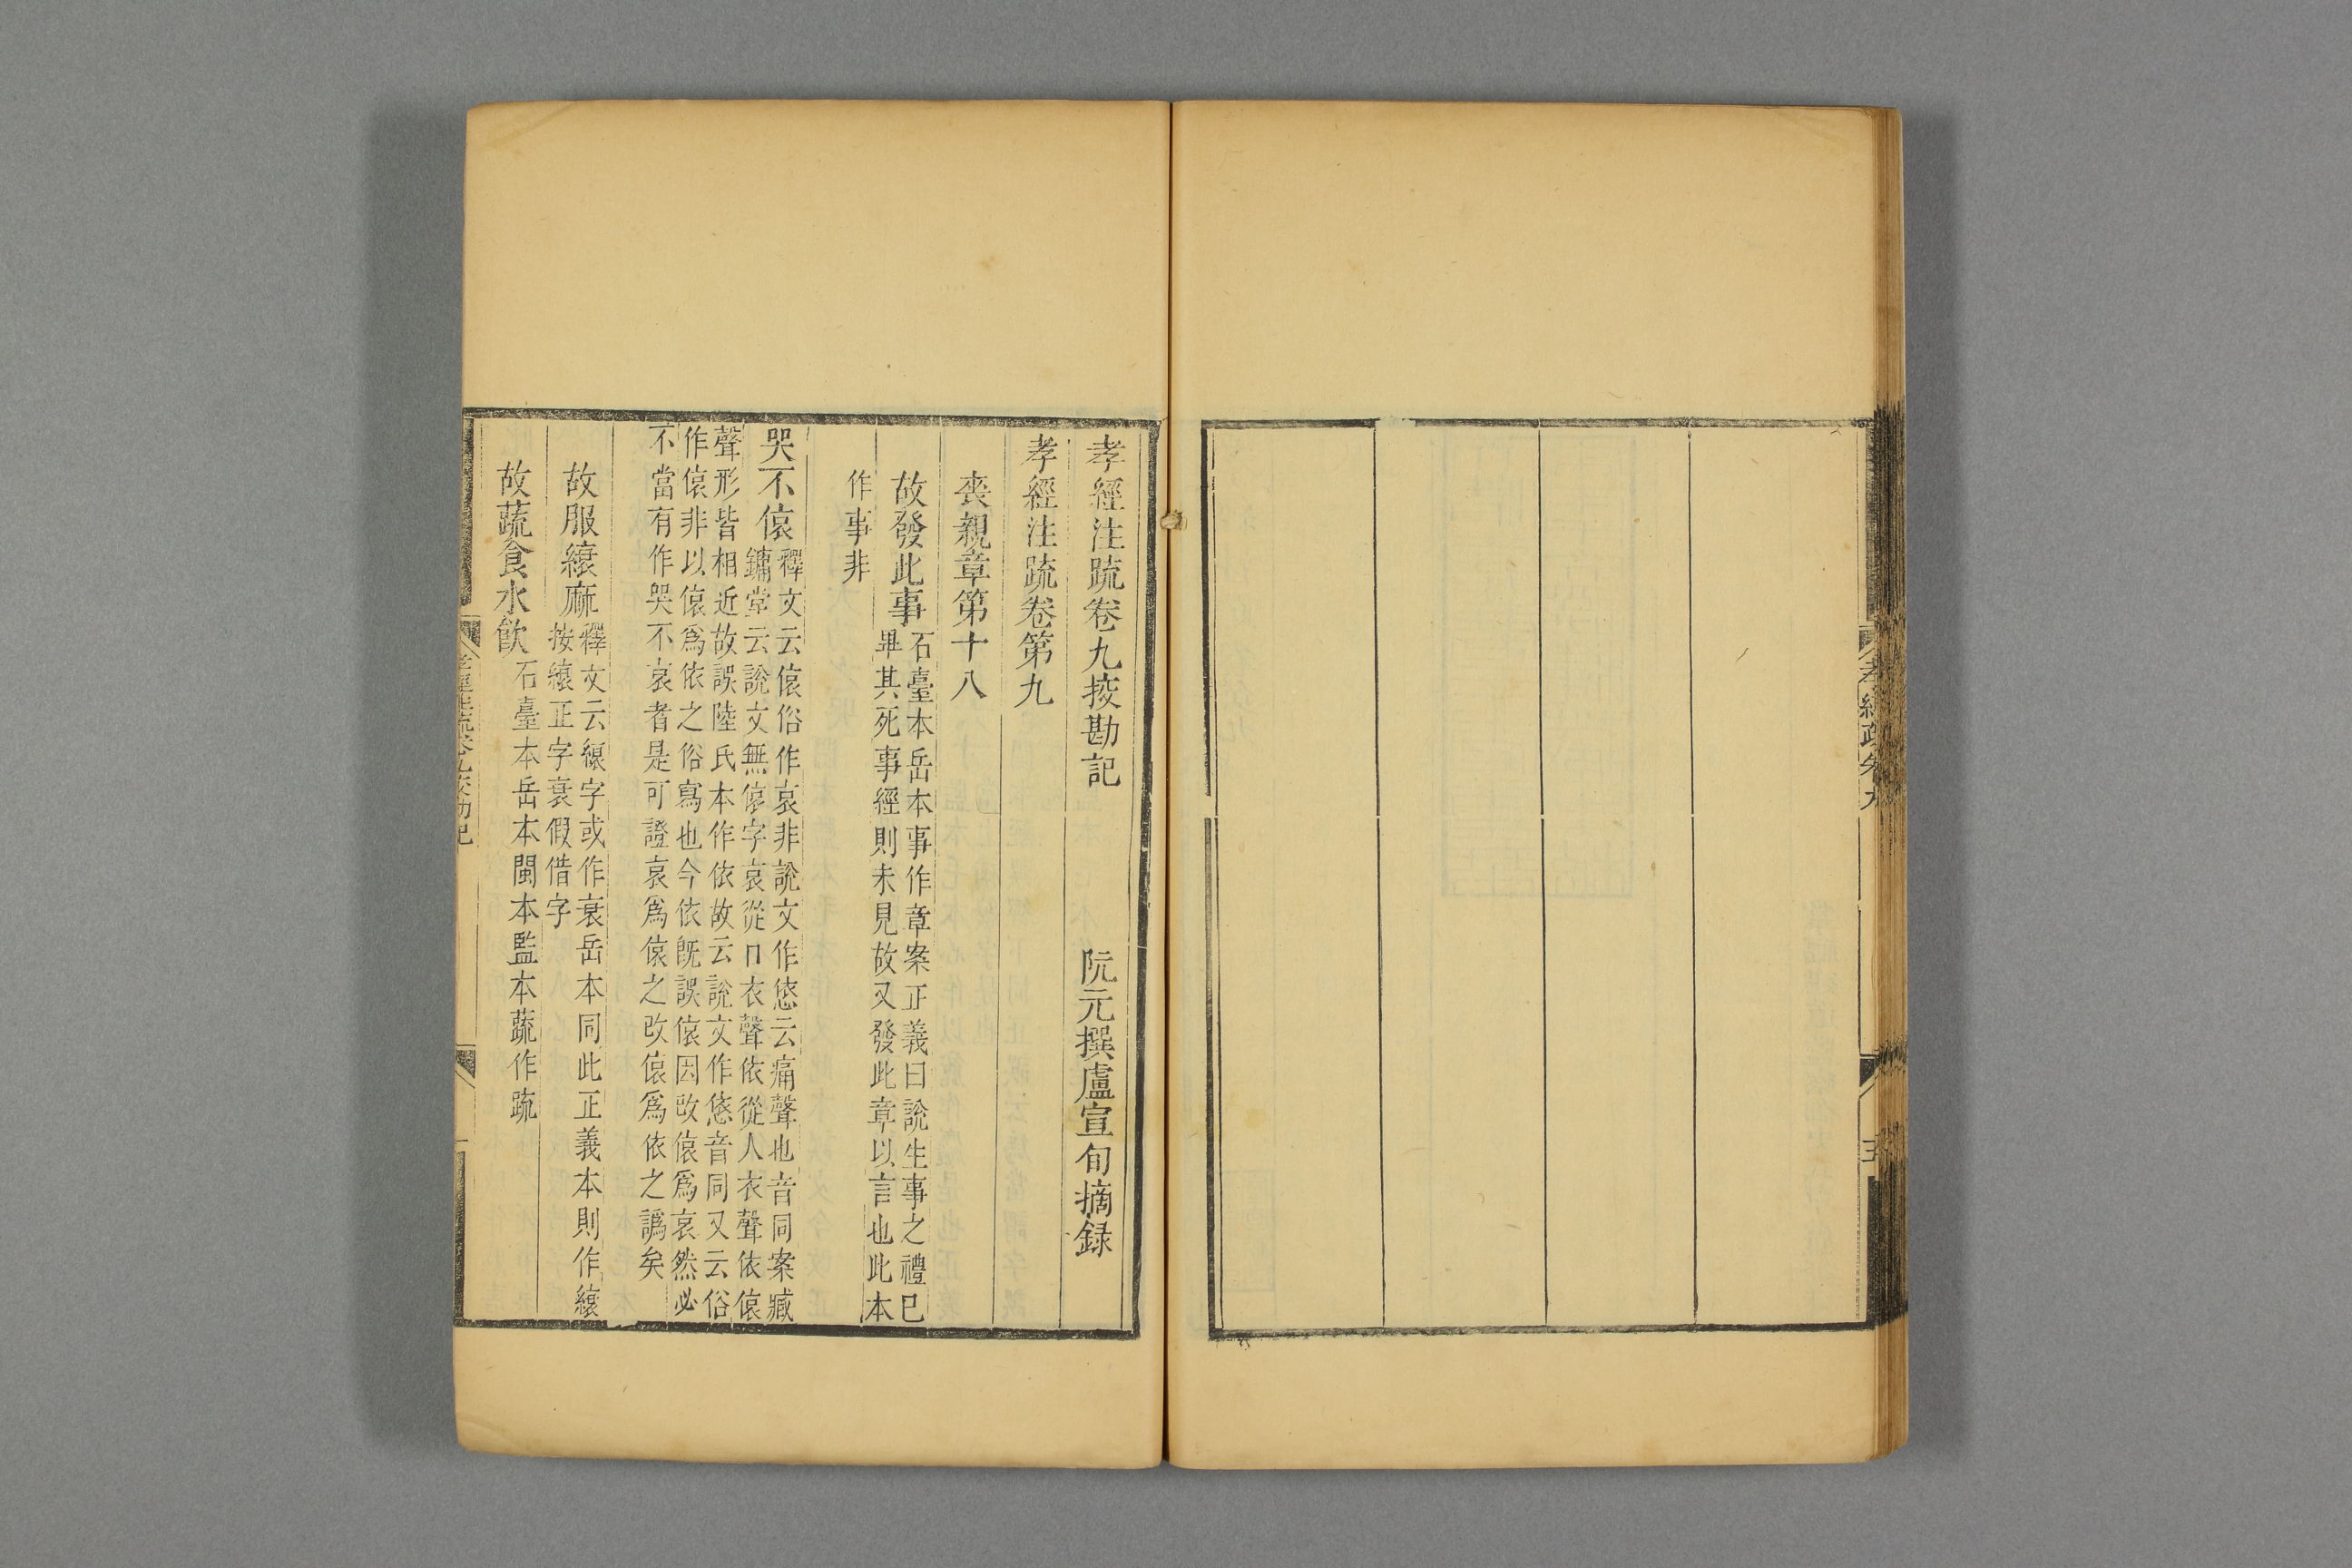 孝經疏卷九
五
孝經注疏卷九挍勘記　阮元撰盧宣旬摘録
孝經注疏卷第九
喪親章第十八
故發此事
石臺本岳本事作章案正義曰說生事之禮已
畢其死事經則未見故又發此章以言也此本
作事非
哭不偯
釋文云偯俗作哀非說文作㥋云痛聲也音同案臧
鏞堂云說文無偯字哀從口衣聲依從人衣聲依偯
聲形皆相近故誤陸氏本作依故云說文作㥋音同又云俗
作偯非以偯爲依之俗寫也今依旣誤偯因改偯爲哀然必
不當有作哭不哀者是可證哀爲偯之改偯爲依之譌矣
故服縗麻
釋文云縗字或作衰岳本同此正義本則作縗
按縗正字衰假借字
故蔬食水飲
石臺本岳本閩本監本蔬作疏
孝經注疏卷九挍勘記